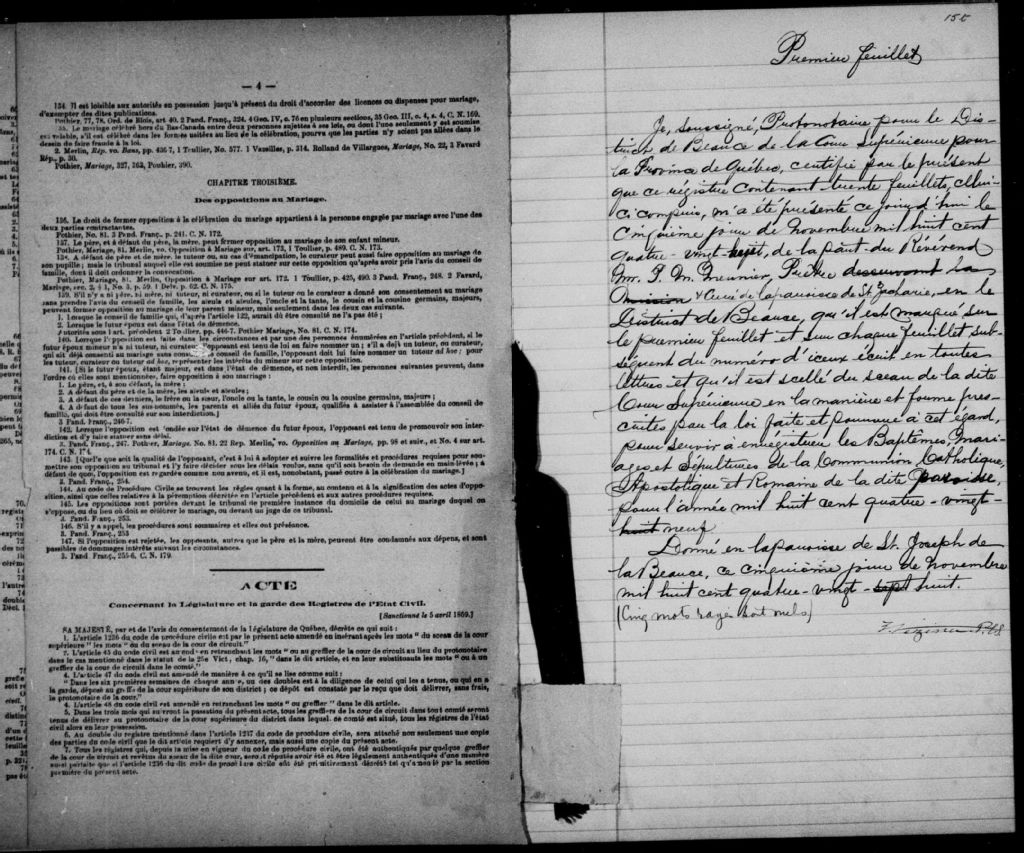 — 4 —
134. Il est loisible aux autorités en possession jusqu'à présent du droit d'accorder des licences ou dispenses pour mariage,
d'exempter des dites publications.
Pothier, 77, 78. Ord. de Blois, art 40. 2 Pand. Franç., 324. 4 Geo. IV, c. 76 en plusieurs sections, 35 Geo. III, c. 4, s. 4, C. N. 169.
35. Le mariage célébré hors du Bas-Canada entre deux personnes sujettes à ses lois, ou dont l'une seulement y est soumise
est valable, s'il est célébré dans les formes usitées au lieu de la célébration, pourvu que les parties n'y soient pas allées dans le
dessein de faire fraude à la loi.
2. Merlin, Rép. vo Bans, pp. 436 7, 1 Toullier, No. 577. 1 Vazeilles, p. 314. Rolland de Villargues, Mariage, No. 22, 3 Favard
Rép., p. 30.
Pothier, Mariage, 327, 263, Pothier, 390.
CHAPITRE TROISIÈME.
Des oppositions au Mariage.
136. Le droit de former opposition à la célébration du mariage appartient à la personne engagée par mariage avec l'une des
deux parties contractantes.
Pothier, No. 81. 3 Pand. Franç., p. 241. C. N. 172.
137. Le père, et à défaut du père, la mère, peut former opposition au mariage de son enfant mineur.
Pothier, Mariage, 81, Merlin, vo. Opposition à Mariage sur art. 173, 1 Toullier, p. 489. C. N. 173.
138. A défaut de père et de mère, le tuteur ou, au cas d'émancipation, le curateur peut aussi faire opposition au mariage de
son pupille; mais le tribunal auquel elle est soumise ne peut statuer sur cette opposition qu'après avoir pris l'avis du conseil de
famille, dont il doit ordonner la convocation.
Pothier, Mariage, 81. Merlin, Opposition à Mariage sur art. 172. 1 Toullier, p. 425, 490. 3 Pand. Franç., 248. 2 Favard,
Mariage, sec. 2, § 1, No. 5, p. 59. 1 Delv. p. 62. C. N. 175.
139. S'il n'y a ni père, ni mère, ni tuteur, ni curateur, ou si le tuteur ou le curateur a donné son consentement au mariage
sans prendre l'avis du conseil de famille, les aïeuls et aïeules, l'oncle et la tante, le cousin et la cousine germains, majeurs,
peuvent former opposition au mariage de leur parent mineur, mais seulement dans les deux cas suivants.
1. Lorsque le conseil de famille qui, d'après l'article 122, aurait dû être consulté ne l'a pas été;
2. Lorsque le futur époux est dans l'état de démence.
Autorités sous l'art. précédent 2 Toullier, pp. 446-7. Pothier Mariage, No. 81. C. N. 174.
140. Lorsque l'opposition est faite dans les circonstances et par une des personnes énumérées en l'article précédent, si le
futur époux mineur n'a ni tuteur, ni curateur, l'opposant est tenu de lui en faire nommer un; s'il a déjà un tuteur, ou curateur,
qui ait déjà consenti au mariage sans consulter le conseil de famille, l'opposant doit lui faire nommer un tuteur ad hoc; pour
les tuteur, curateur ou tuteur ad hoc, représenter les intérêts du mineur sur cette opposition.
141. [Si le futur époux, étant majeur, est dans l'état de démence, et non interdit, les personnes suivantes peuvent, dans
l'ordre où elles sont mentionnées, faire opposition à son mariage:
1. Le père, et, à son défaut, la mère;
2. A défaut du père et de la mère, les aïeuls et aïeules;
3. A défaut de ces derniers, le frère ou la sœur, l'oncle ou la tante, le cousin ou la cousine germains, majeurs;
4. A défaut de tous les sus-nommés, les parents et alliés du futur époux, qualifiés à assister à l'assemblée du conseil de
famille, qui doit être consulté sur son interdiction.]
3 Pand. Franç., 246-7.
142. Lorsque l'opposition est fondée sur l'état de démence du futur époux, l'opposant est tenu de promouvoir son inter-
diction et d'y faire statuer sans délai.
3. Pand. Franç., 247. Pothier, Mariage. No. 81, 22 Rep. Merlin, vo. Opposition au Mariage, pp. 98 et suiv., et No. 4 sur art.
174. C. N. 174.
143. [Quel'e que soit la qualité de l'opposant, c'est à lui à adopter et suivre les formalités et procédures requises pour sou-
mettre son opposition au tribunal et l'y faire décider sous les délais voulus, sans qu'il soit besoin de demande en main-levée; à
défaut de quoi, l'opposition est regardée comme non avenue, et il est, nonobstant, passé outre à la célébration du mariage.]
3. Pand. Franç., 254.
144. Au code de Procédure Civile se trouvent les règles quant à la forme, au contenu et à la signification des actes d'oppo-
sition, ainsi que celles relatives à la péremption décrétée en l'article précédent et aux autres procédures requises.
145. Les oppositions sont portées devant le tribunal de première instance du domicile de celui au mariage duquel on
s'oppose, ou du lieu où doit se célébrer le mariage, ou devant un juge de ce tribunal.
3. Pand. Franç., 253.
146. S'il y a appel, les procédures sont sommaires et elles ont préséance.
3. Pand. Franç., 253
147. Si l'opposition est rejetée, les opposants, autres que le père et la mère, peuvent être condamnés aux dépens, et sont
passibles de dommages intérêts suivant les circonstances.
3. Pand. Franç., 255-6. C. N. 179.
ACTE
Concernant la Législature et la garde des Registres de l'Etat Civil.
[Sanctionné le 5 avril 1869.]
SA MAJESTÉ, par et de l'avis du consentement de la législature de Québec, décrète ce qui suit:
1. L'article 1236 du code de procédure civile est par le présent acte amendé en insérant après les mots " du sceau de la cour
supérieure " les mots " ou du sceau de la cour de circuit."
2. L'article 45 du code civil est amendé en retranchant les mots " ou au greffier de la cour de circuit au lieu du protonotaire
dans le cas mentionné dans le statut de la 25e Vict, chap. 16, " dans le dit article, et en leur substituant les mots " ou à un
greffier de la cour de circuit dans le comté."
4. L'article 47 du code civil est amendé de manière à ce qu'il se lise comme suit:
" Dans les six premières semaines de chaque année, un des doubles est à la diligence de celui qui les a tenus, ou qui en a
la garde, déposé au greffe de la cour supérieure de son district; ce dépôt est constaté par le reçu que doit délivrer, sans frais,
le protonotaire de la cour."
4. L'article 48 du code civil est amendé en retranchant les mots " ou greffier " dans le dit article.
5. Dans les trois mois qui suivront la passation du présent acte, tous les greffiers de la cour de circuit dans tout comté seront
tenus de délivrer au protonotaire de la cour supérieure du district dans lequel ce comté est situé, tous les régistres de l'état
civil alors en leur possession.
6. Au double du registre mentionné dans l'article 1237 du code de procédure civile, sera attaché non seulement une copie
des parties du code civil que le dit article requiert d'y annexer, mais aussi une copie du présent acte.
7. Tous les régistres qui, depuis la mise en vigueur du code de procédure civile, ont été authentiqués par quelque greffier
de la cour de circuit et revêtus du sceau de la dite cour, seront réputés avoir été et être légalement authentiqués d'une manière
aussi parfaite que si l'article 1236 du dit code de procédure civile eût été primitivement décrété tel qu'amendé par la section
première du présent acte.
Premier feuillet
Je, soussigné, Protonotaire pour le Dis-
trict de Beauce de la Cour Supérieure pour
la Province de Québec, certifie par le présent
que ce régistre contenant trente feuillets, celui-
ci compris, m'a été présenté ce jourd'hui le
cinquième jour de Novembre mil huit cent
quatre-vingt-huit, de la part du Révérend
Mr. J. M. Meunier, Prêtre desservant la
Mission & Curé de la paroisse de St. Zacharie, en le
District de Beauce, qu'il est marqué sur
le premier feuillet et sur chaque feuillet sub-
séquent du numéro d'iceux écrit en toutes
lettres et qu'il est scellé du sceau de la dite
Cour Supérieure en la manière et forme pres-
crites par la loi faite et pourvue à cet égard,
pour servir à enregistrer les Baptêmes, Mari-
ages et Sépultures de la Communion Catholique,
Apostolique et Romaine de la dite Paroisse,
pour l'année mil huit cent quatre-vingt-
huit neuf
Donné en la paroisse de St. Joseph de
la Beauce, ce cinquième jour de Novembre
mil huit cent quatre-vingt-sept huit.
(Cinq mots rayés sont nuls)